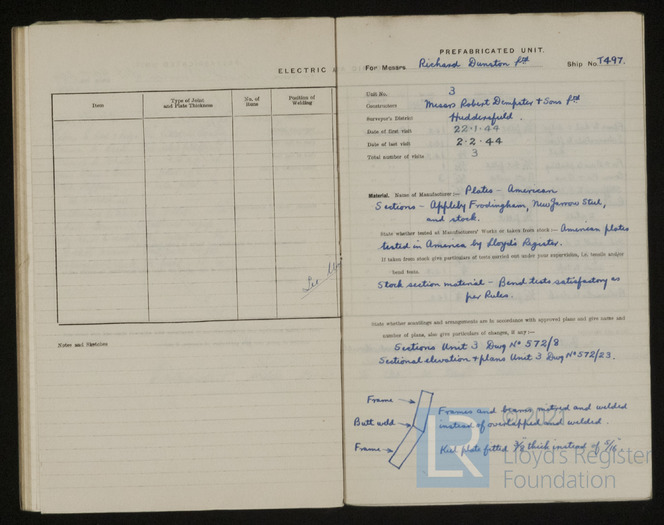 ELECTRIC
Item
Type of Joint
and Plate Thickness
No. of
Runs
Position of
Welding
Notes and Sketches
PREFABRICATED UNIT.
For Messrs Richard Dunston Ltd Ship No. T497.
Unit No. 3
Constructors Messrs Robert Dempster & Sons Ltd
Surveyor's District Huddersfield.
Date of first visit 22.1.44
Date of last visit 2.2.44
Total number of visits 3
Material. Name of Manufacturer :— Plates - American
Sections - Appleby Frodingham, New Jarrow Steel,
and stock.
State whether tested at Manufacturers' Works or taken from stock :— American plates
tested in America by Lloyd's Register.
If taken from stock give particulars of tests carried out under your supervision, i.e. tensile and/or
bend tests.
Stock section material - Bend tests satisfactory as
per Rules.
State whether scantlings and arrangements are in accordance with approved plans and give name and
number of plans, also give particulars of changes, if any :—
Sections Unit 3 Dwg No 572/8
Sectional elevation & plans Unit 3 Dwg No 572/23.
Frame
Butt weld
Frame
Frames and beams mitred and welded
instead of overlapped and welded.
Keel plate fitted 3/8" thick instead of 5/16"
© 2021
LR
Lloyd's Register
Foundation